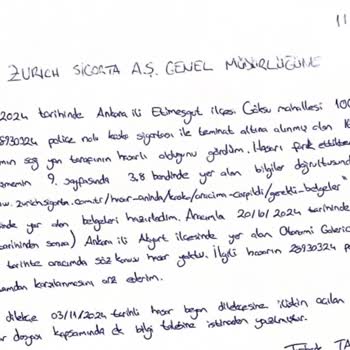 11
ZURICH SİGORTA A.Ş. GENEL MÜDÜRLÜĞÜNE
2024 tarihinde Ankara ili Etimesgut ilçesi Göksu mahallesi
28930324 police nolu kasko sigortası ile teminat altına alınmış olan
sağ yan tarafının hasarlı olduğunu gördüm. Hasarı fark ettikten
9. sayfasında 3.8 bendinde yer alan bilgiler doğrultusunda
zurichsigorta.com.tr/hasar-aninda/kasko/aracima-carpildi/gerekli-belgeler"
yer alan belgeleri hazırladım. Aracımla 20/6/2024 tarihinde
tarihinden sonra) Ankara ili Akyurt ilçesinde yer alan Otonomi
tarihte aracımda söz konusu hasar yoktu. İlgili hasarın 28930324
karşılanmasını arz ederim.
dilekçe 03/11/2024 tarihli hasar beyan dilekçesine ilişkin açılan
dosyası kapsamında ek bilgi talebine istinaden yazılmıştır.